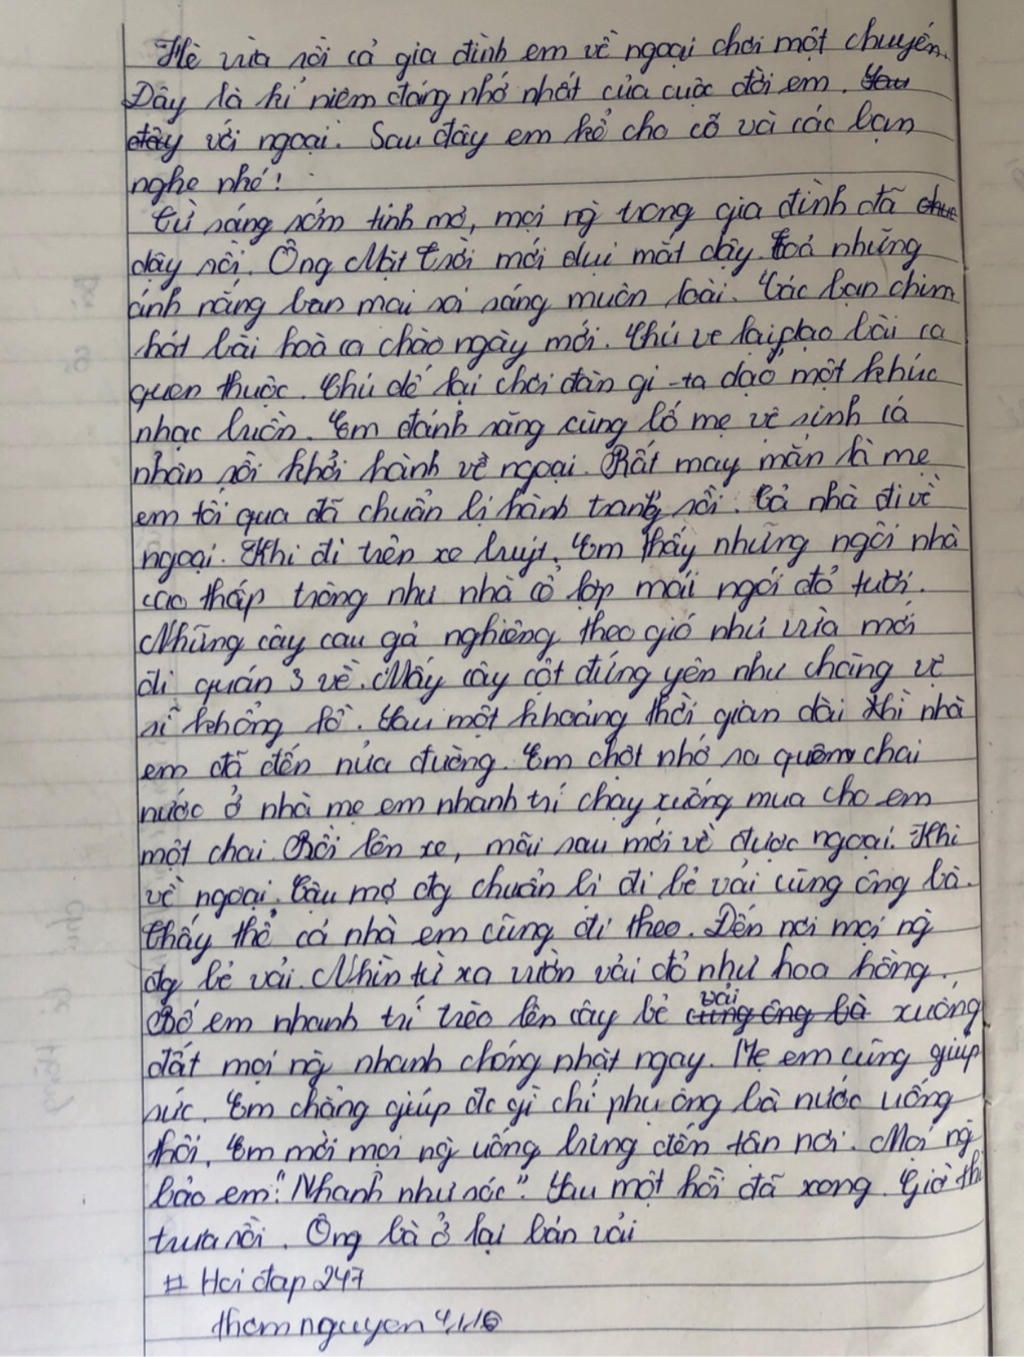 Hè vừa rồi cả gia đình em về ngoại chơi một chuyến.
Đây là kỉ niệm đáng nhớ nhất của cuộc đời em. Sau
đây với ngoại. Sau đây em kể cho cô và các bạn
nghe nhé!
Từ sáng sớm tinh mơ, mọi ng trong gia đình đã
dậy rồi. Ông Mặt Trời mới dụi mắt dậy toả những
ánh nắng ban mai soi sáng muôn loài. Các bạn chim
hát bài hoà ca chào ngày mới. Chú ve lại dạo bài ca
quen thuộc. Chú dế lại chơi đàn gi-ta dạo một khúc
nhạc luôn. Em đánh răng cùng bố mẹ vệ sinh cá
nhân rồi khởi hành về ngoại. Rất may mắn là mẹ
em tối qua đã chuẩn bị hành trang rồi. Cả nhà đi về
ngoại. Khi đi trên xe buýt, Em thấy những ngôi nhà
cao thấp trông như nhà cổ lợp mái ngói đỏ tươi.
Những cây cau gả nghiêng theo gió như vừa mới
đi quán 3 về. Mấy cây cột đứng yên như chàng vệ
sĩ khổng lồ. Sau một khoảng thời gian dài thì nhà
em đã đến nửa đường. Em chợt nhớ ra quên chai
nước ở nhà mẹ em nhanh trí chạy xuống mua cho em
một chai. Rồi lên xe, mãi sau mới về được ngoại. Khi
về ngoại, Cậu mợ đg chuẩn bị đi bẻ vải cùng ông bà.
Thấy thế cả nhà em cũng đi theo. Đến nơi mọi ng
đg bẻ vải. Nhìn từ xa vườn vải đỏ như hoa hồng.
Bố em nhanh trí trèo lên cây bẻ vải cùng ông bà xuống
đất mọi ng nhanh chóng nhặt ngay. Mẹ em cũng giúp
sức. Em chẳng giúp đc gì chỉ phụ ông bà nước uống
thôi. Em mời mọi ng uống bưng đến tận nơi. Mọi ng
bảo em: "Nhanh như sóc". Sau một hồi đã xong. Giờ thì
trưa rồi. Ông bà ở lại bán vải
# Hoi đap 247
thomnguyen 4116